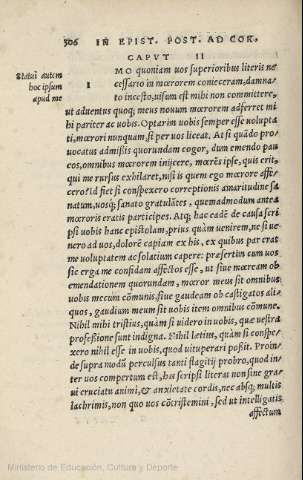 306 IN EPIST. POST. AD COR.
CAPVT II
Statui autem
hoc ipsum
apud me
I
MO quoniam uos superioribus literis ne
cessario in mœrorem conieceram; damna
to incesto, uisum est mihi non committere,
ut aduentus quoq; meus nouum mœrorem adferret mi
hi pariter ac uobis. Optarim uobis semper esse uolupta
ti, mœrori nunquam, si per uos liceat. At si quãdo pro
uocatus admißis quorundam cogor, dum emendo pau
cos, omnibus mœrorem inijcere, mœrẽs ipse, quis erit,
qui me rursus exhilaret, nisi is quem ego mœrore affe
cero? Id fiet si conspexero correptionis amaritudine sa
natum, uosq; sanato gratulãtes, quemadmodum antea
mœroris eratis participes. Atq; hac eadẽ de causa scri
psi uobis hanc epistolam, prius quàm uenirem, ne si ue
nero ad uos, dolorẽ capiam ex his, ex quibus par erat
me uoluptatem ac solatium capere: præsertim cum uos
sic erga me confidam affectos esse, ut siue mœream ob
emendationem quorundam, mœror meus sit omnibus
uobis mecum cõmunis, siue gaudeam ob castigatos ali
quos, gaudium meum sit uobis item omnibus cõmune.
Nihil mihi tristius, quàm si uidero in uobis, quæ uestra
profeßione sunt indigna. Nihil lætius, quàm si conspe
xero nihil esse in uobis, quod uituperari poßit. Proin
de supra modũ perculsus tanti flagitij probro, quod in
ter uos compertum est, hæc scripsi literas non sine gra
ui cruciatu animi, & anxietate cordis, nec absq; multis
lachrimis, non quo uos cõtristemini, sed ut intelligatis
affectum
Ministerio de Educación, Cultura y Deporte